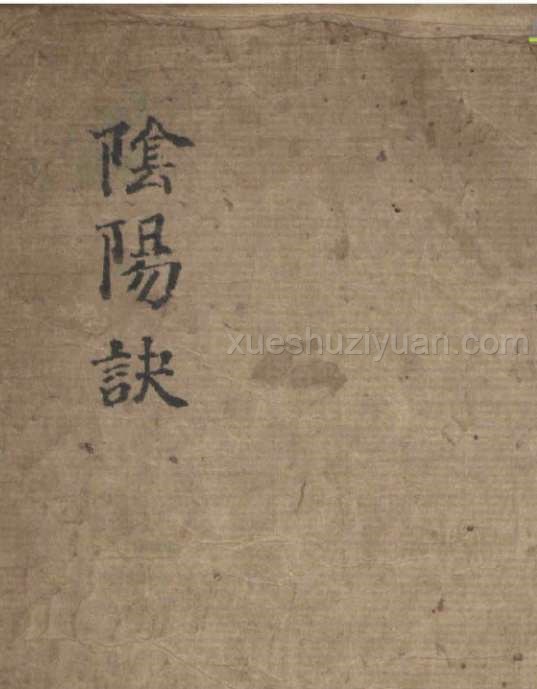 陰陽訣
xueshuziyuan.com